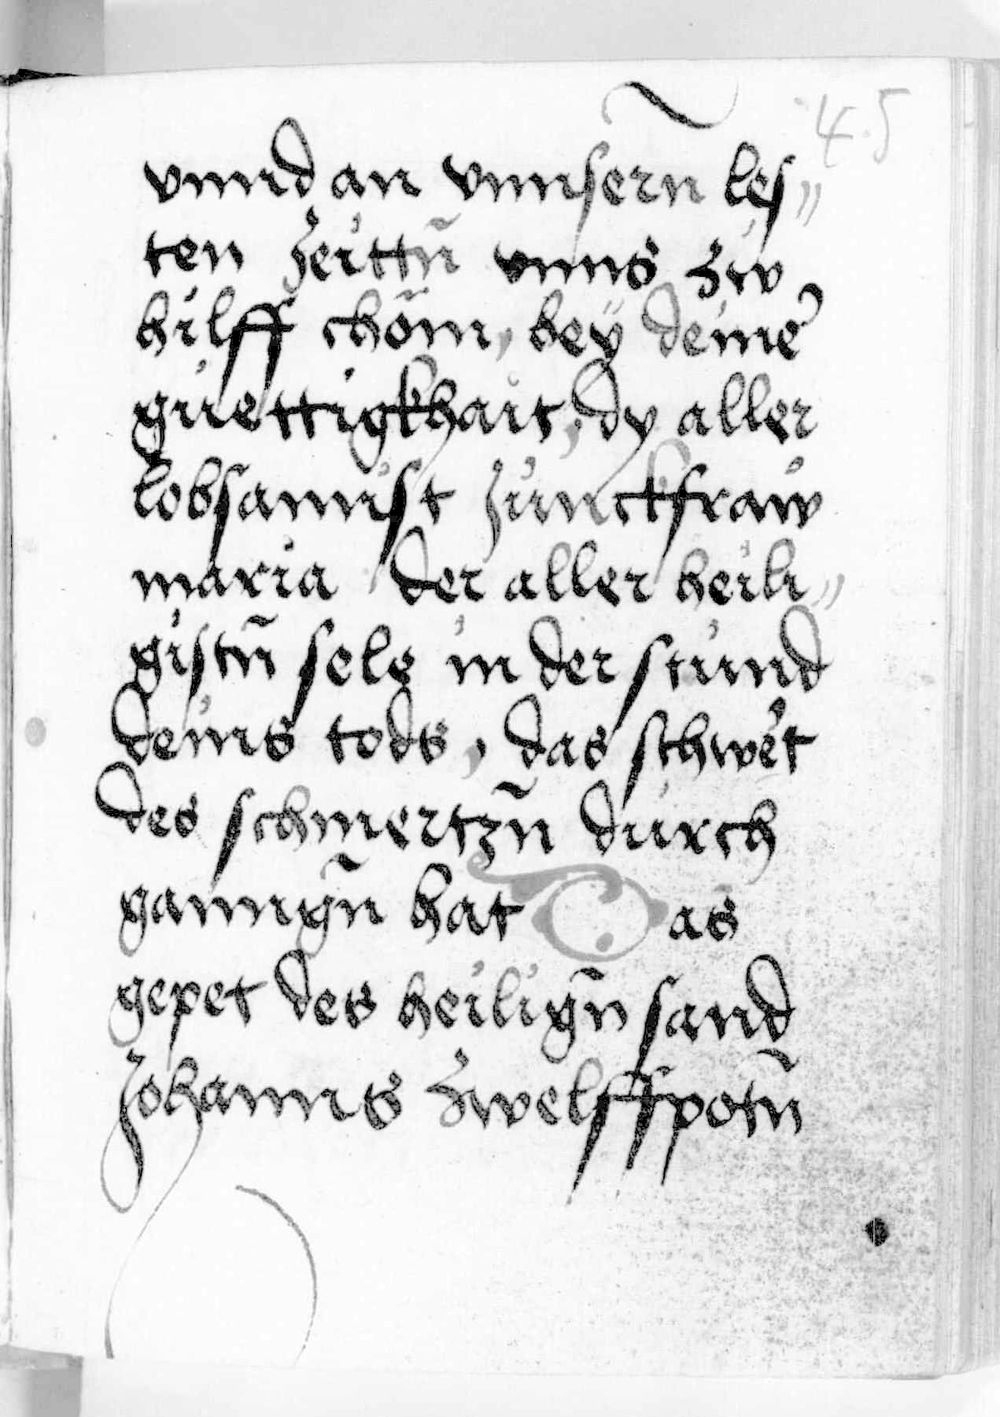 45
vnnd an vnnsern̄ les„
ten Zeittn̄ vnns zw
hilff chōm, bey deine᷑
guettigkhait, dy aller
lobsamist Junckfraw
maria der aller heili„
gistn̄ sele in der stund
deins tods, das schwe᷑t
des schmertzn̄ durch
ganngn̄ hat Das
gepet des heilign̄ sand
Johanns Zwelffpotn̄